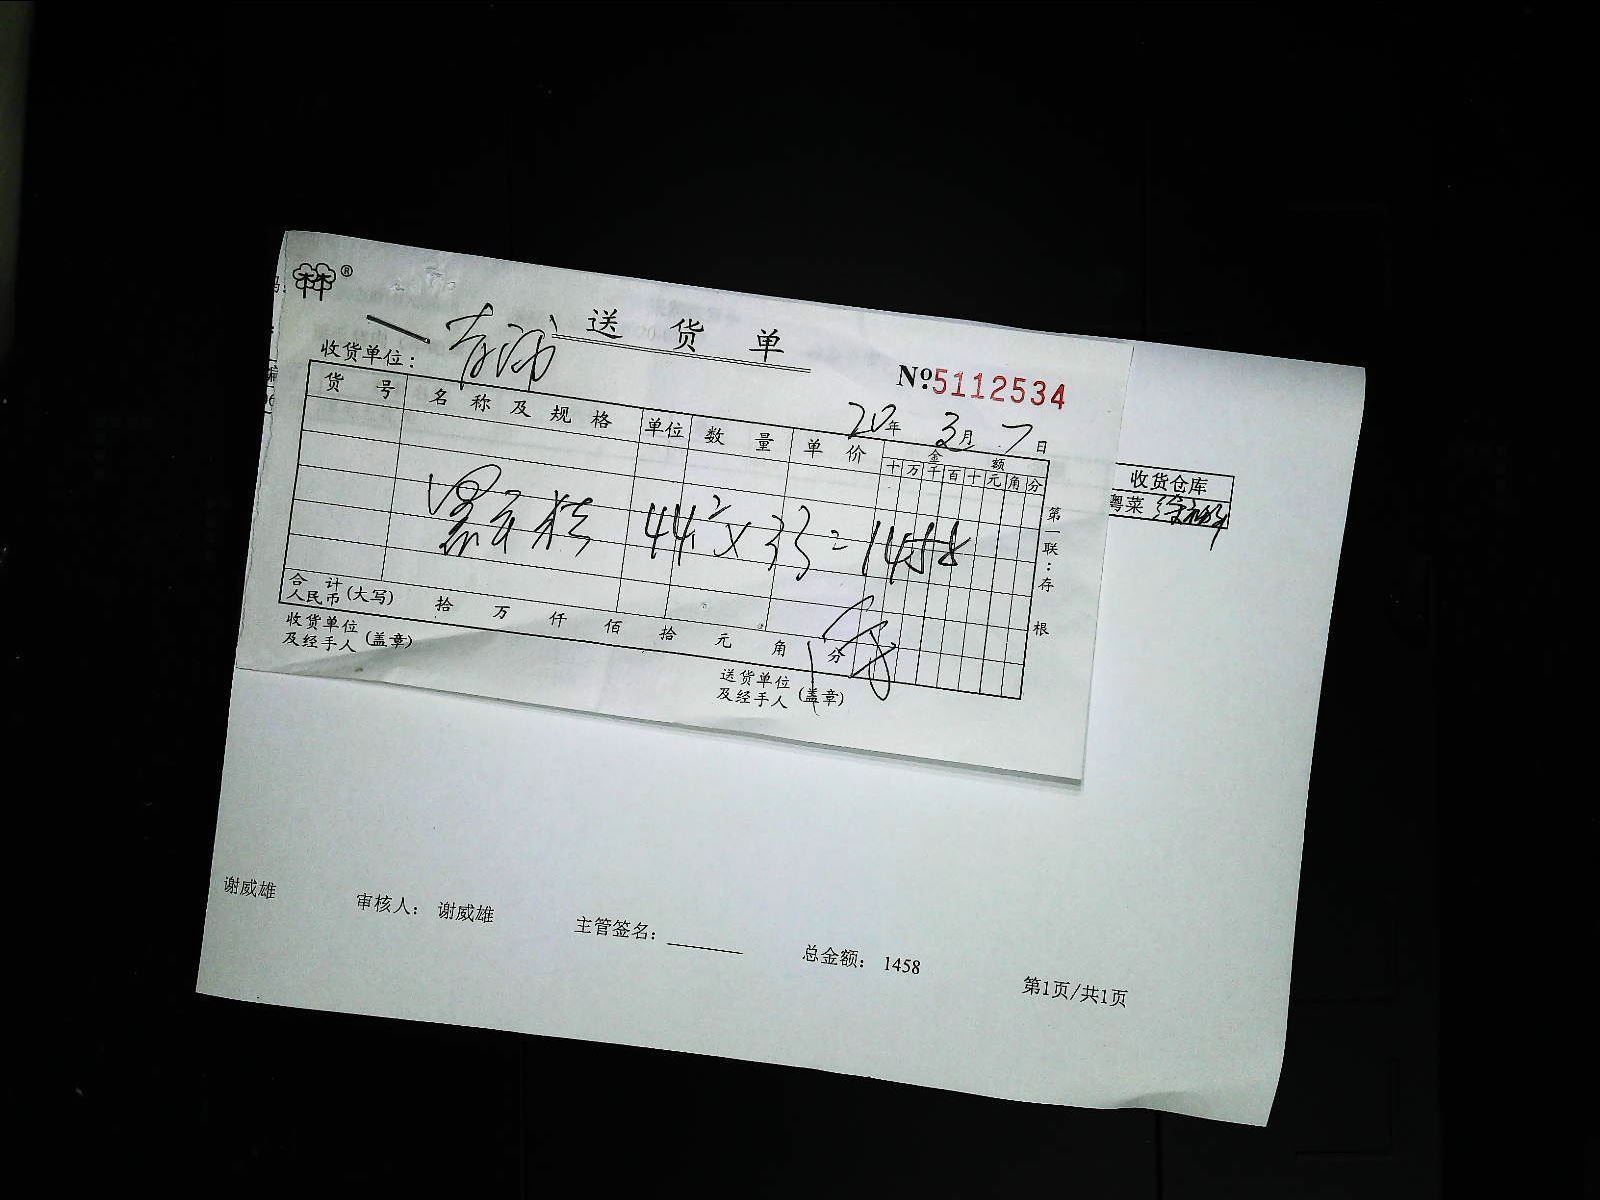 送货单
收货单位:
№5112534
20年 3月 7日
货号 名称及规格 单位 数量 单价 金额
十万千百十元角分
44² × 33 = 1458
合计
人民币(大写) 拾 万 仟 佰 拾 元 角 分
收货单位
及经手人(盖章)
送货单位
及经手人(盖章)
第一联:存根
收货仓库
粤菜
谢威雄 审核人: 谢威雄 主管签名: 总金额: 1458
第1页/共1页